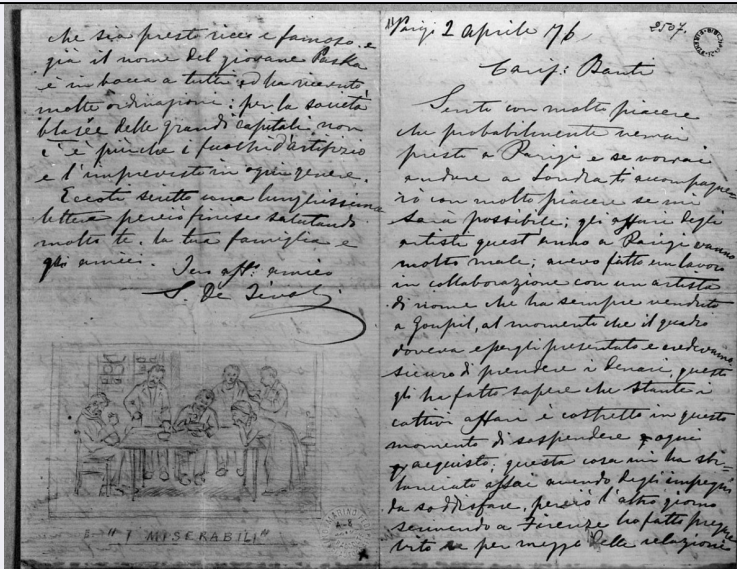 che sia presto ricco e famoso, e
già il nome del giovane Paska
è in bocca a tutti ed ha ricevuto
molte ordinazioni; per la società
blasée delle grandi capitali non
c'è più che i fuochi d'artifizio
e l'imprevisto in ogni genere.
Eccoti scritto una lunghissima
lettera perciò finisco salutando
molto te, la tua famiglia e
gli amici. Tuo aff: amico
S. De Tivoli
"I MISERABILI"
Parigi 2 Aprile 76
2507.
Carif: Banti
Sento con molto piacere
che probabilmente verrai
presto a Parigi e se vorrai
andare a Londra ti accompagne-
rò con molto piacere se mi
sarà possibile; gli affari degli
artisti quest'anno a Parigi vanno
molto male; avevo fatto un lavoro
in collaborazione con un artista
di nome che ha sempre venduto
a Goupil, al momento che il quadro
doveva essergli presentato e credevamo
sicuro di prendere i denari, questo
gli ha fatto sapere che stante i
cattivi affari è costretto in questo
momento di sospendere ogni
acquisto; questa cosa mi ha sbi-
lanciato assai avendo degli impegni
da soddisfare, perciò l'altro giorno
scrivendo a Firenze ho fatto
per mezzo delle relazioni